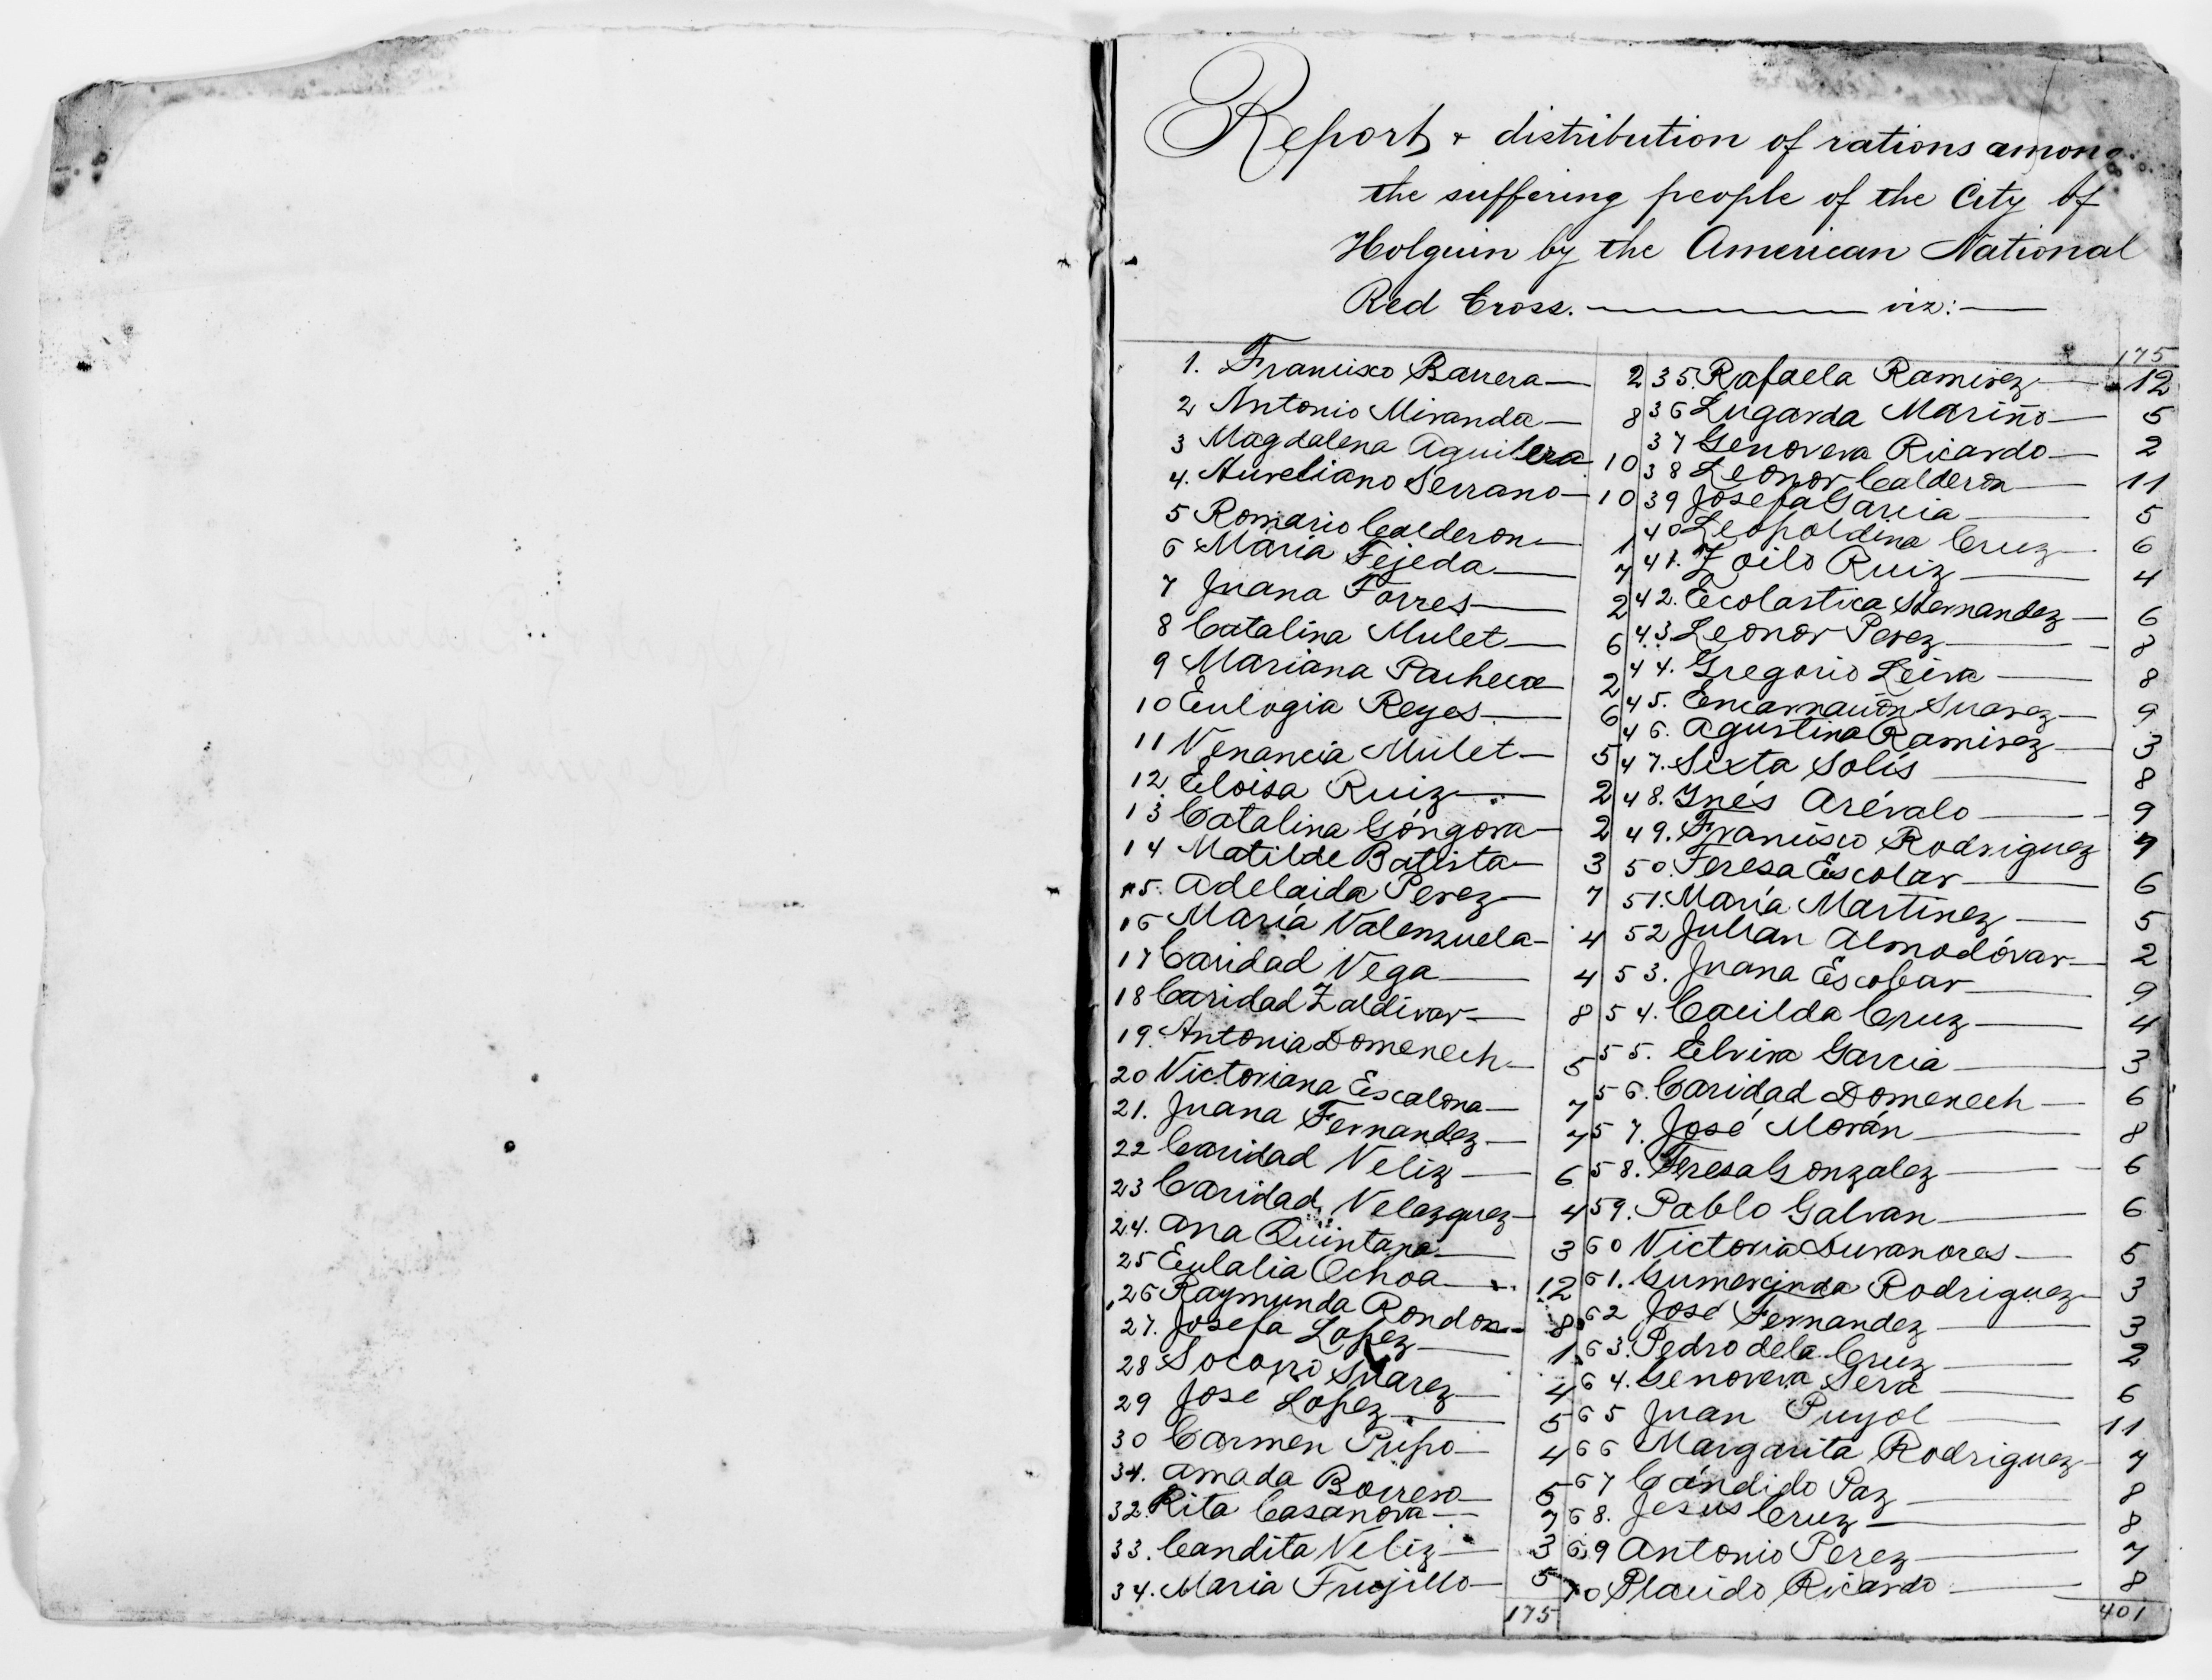 Report & distribution of rations among
the suffering people of the City of
Holguin by the American National
Red Cross. viz:
1. Francisco Barrera 2
2 Antonio Miranda 8
3 Magdalena Aguilera 10
4. Aureliano Serrano 10
5 Romario Calderon 1
6 Maria Tejeda 7
7 Juana Torres 2
8 Catalina Mulet 6
9 Mariana Pacheco 2
10 Eulogia Reyes 6
11 Venancia Mulet 5
12 Eloisa Ruiz 2
13 Catalina Góngora 2
14 Matilde Batista 3
15. Adelaida Perez 7
16 María Valenzuela 4
17 Caridad Vega 4
18 Caridad Zaldivar 8
19. Antonia Domenech 5
20 Victoriana Escalona 7
21. Juana Fernandez 7
22 Caridad Veliz 6
23 Caridad Velazquez 4
24. Ana Quintana 3
25 Eulalia Ochoa 12
26 Raymunda Rondon 8
27. Josefa Lopez 1
28 Socorro Suarez 4
29 José Lopez 5
30 Carmen Pupo 4
31. Amada Borrero 5
32. Rita Casanova 7
33. Candita Veliz 3
34. Maria Trujillo 5
175
175
35. Rafaela Ramirez 12
36 Lugarda Mariño 5
37 Genoveva Ricardo 2
38 Leonor Calderon 11
39 Josefa Garcia 5
40 Leopoldina Cruz 6
41. Zoilo Ruiz 4
42. Escolastica Hernandez 6
43. Leonor Perez 8
44. Gregorio Leiva 8
45. Encarnación Suarez 9
46. Agustina Ramirez 3
47. Sixta Solís 8
48. Inés Arévalo 9
49. Francisco Rodriguez 7
50. Teresa Escolar 6
51. María Martinez 5
52 Julián Almodóvar 2
53. Juana Escobar 9
54. Cacilda Cruz 4
55. Elvira Garcia 3
56. Caridad Domenech 6
57. José Morán 8
58. Teresa Gonzalez 6
59. Pablo Galvan 6
60 Victoria 5
61. Gumercinda Rodriguez 3
62 José Fernandez 3
63. Pedro de la Cruz 2
64. Genoveva Sera 6
65 Juan Puyol 11
66 Margarita Rodriguez 7
67 Cándido Paz 8
68. Jesus Cruz 8
69 Antonio Perez 7
70 Placido Ricardo 8
401